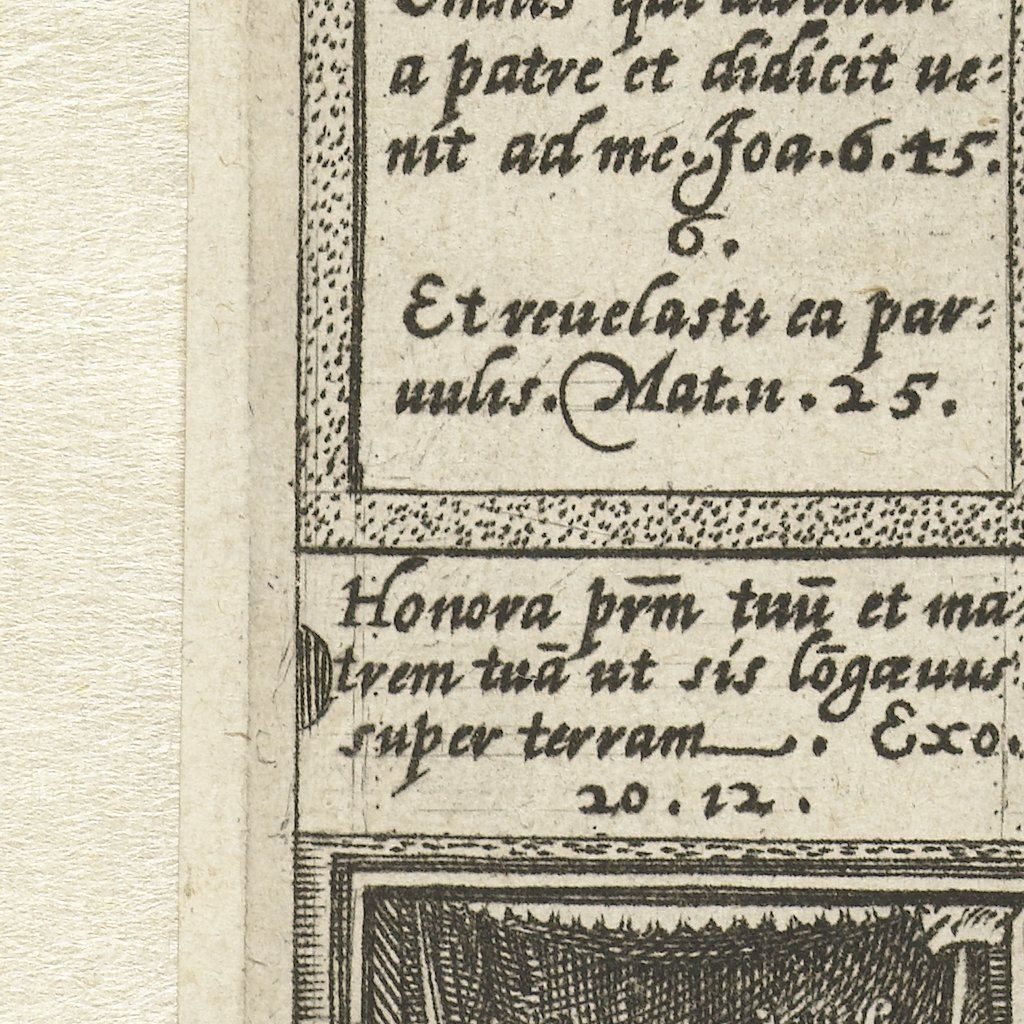 Omnis qui audiuit
a patre et didicit ue:
nit ad me. Joa. 6. 45.
6.
Et reuelasti ea par:
uulis. Mat. 11. 25.
Honora pr̄m tuū et ma:
trem tuā ut sis lōgæuus
super terram. Exo.
20. 12.